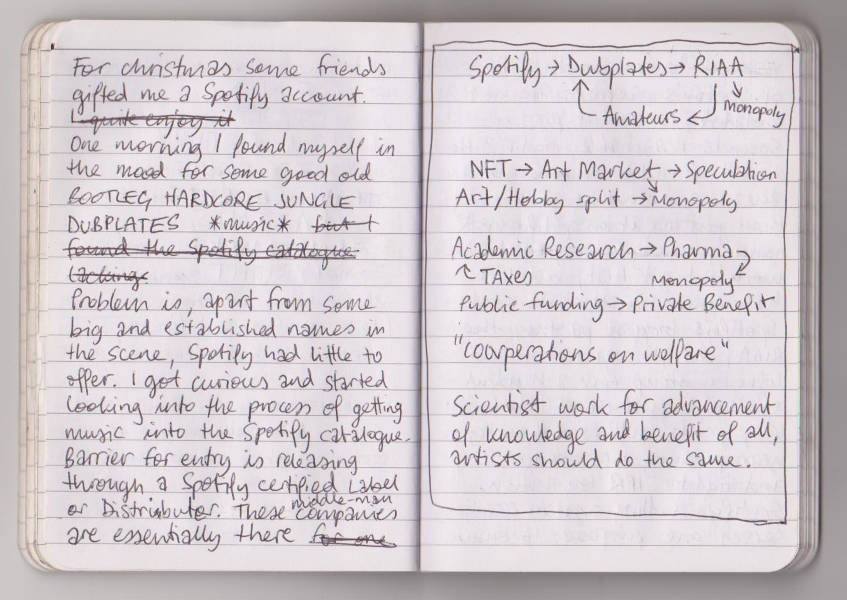 For christmas some friends
gifted me a Spotify account.
I quite enjoy it
One morning I found myself in
the mood for some good old
BOOTLEG HARDCORE JUNGLE
DUBPLATES *music* but I
found the Spotify catalogue
lacking.
Problem is, apart from some
big and established names in
the scene, Spotify had little to
offer. I got curious and started
looking into the process of getting
music into the Spotify catalogue.
Barrier for entry is releasing
through a Spotify certified Label
or Distributor. These middle-man companies
are essentially there for one
Spotify → Dubplates → RIAA
Amateurs ← Monopoly
NFT → Art Market → Speculation
Art/Hobby split → Monopoly
Academic Research → Pharma
TAXES Monopoly
Public funding → Private Benefit
"coorperations on welfare"
Scientist work for advancement
of knowledge and benefit of all,
artists should do the same.